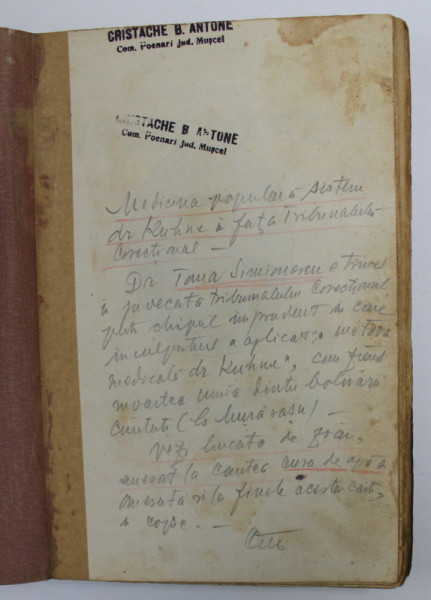 CRISTACHE B. ANTONE
Com. Poenari Jud. Mușcel
CRISTACHE B ANTONE
Com. Poenari Jud. Mușcel
Medicina populară sistem
dr Kuhne în fața Tribunalului
Corecțional —
Dr Toma Simionescu e trimes
în judecata tribunalului Corecțional
chipul imprudent în care
inculpatul a aplicat "metoda
medicală dr Kuhne", cum fiind
moartea unia dintre bolnavii
curitati
Vezi bucata de ziar,
la cartea cura de apă
și la finele acestei carți,
o copie. —